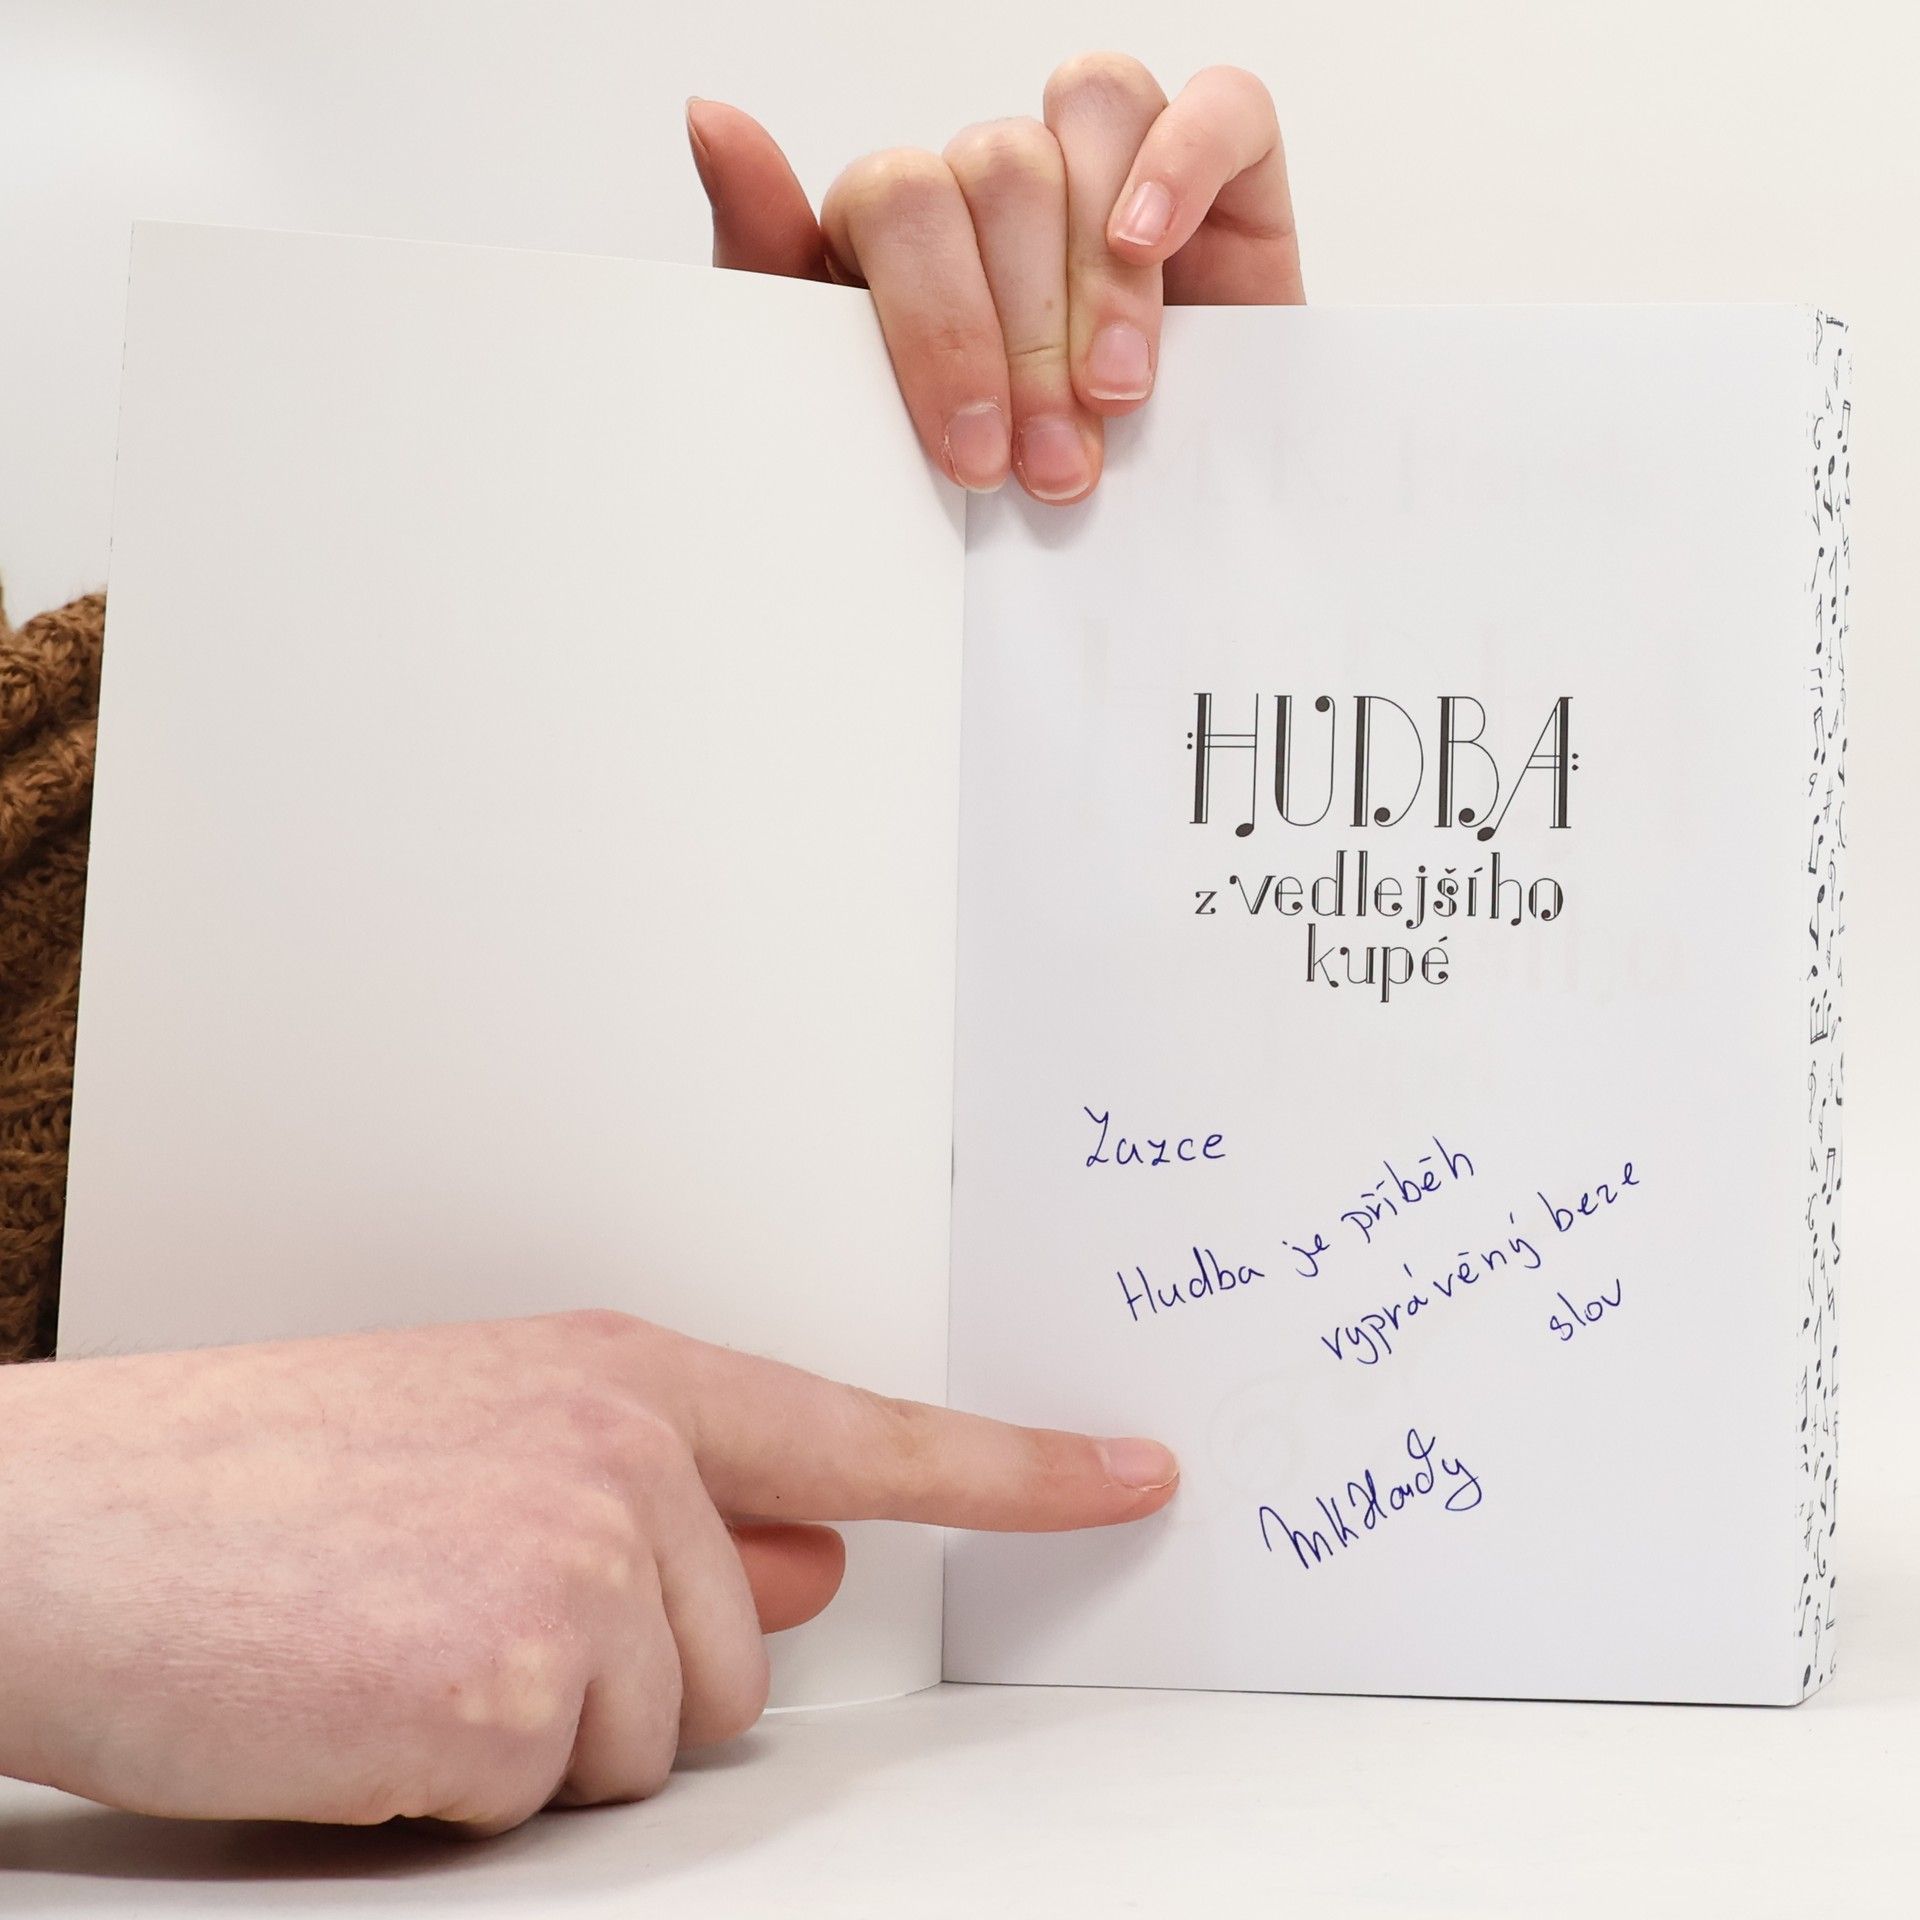 HUDBA
z vedlejšího
kupé
Zazce
Hudba je příběh
vyprávěný beze
slov
MKHardy